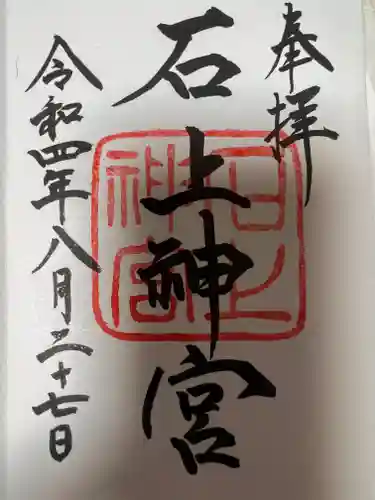 奉拝
石上神宮
石上
神宮
令和四年八月二十七日